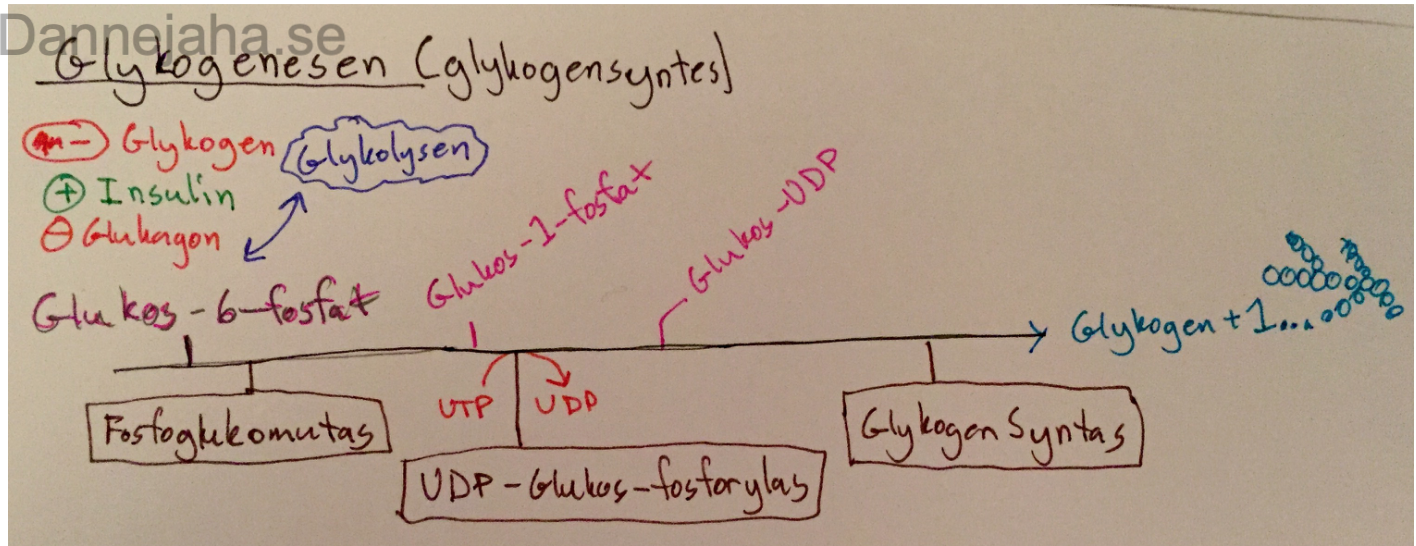 Dannejaha.se
Glykogenesen (glykogensyntes)
- Glykogen
Glykolysen
+ Insulin
- Glukagon
Glukos-6-fosfat
Glukos-1-fosfat
Glukos-UDP
Glykogen + 1...
UTP
UDP
Fosfoglukomutas
UDP-Glukos-fosforylas
Glykogen Syntas